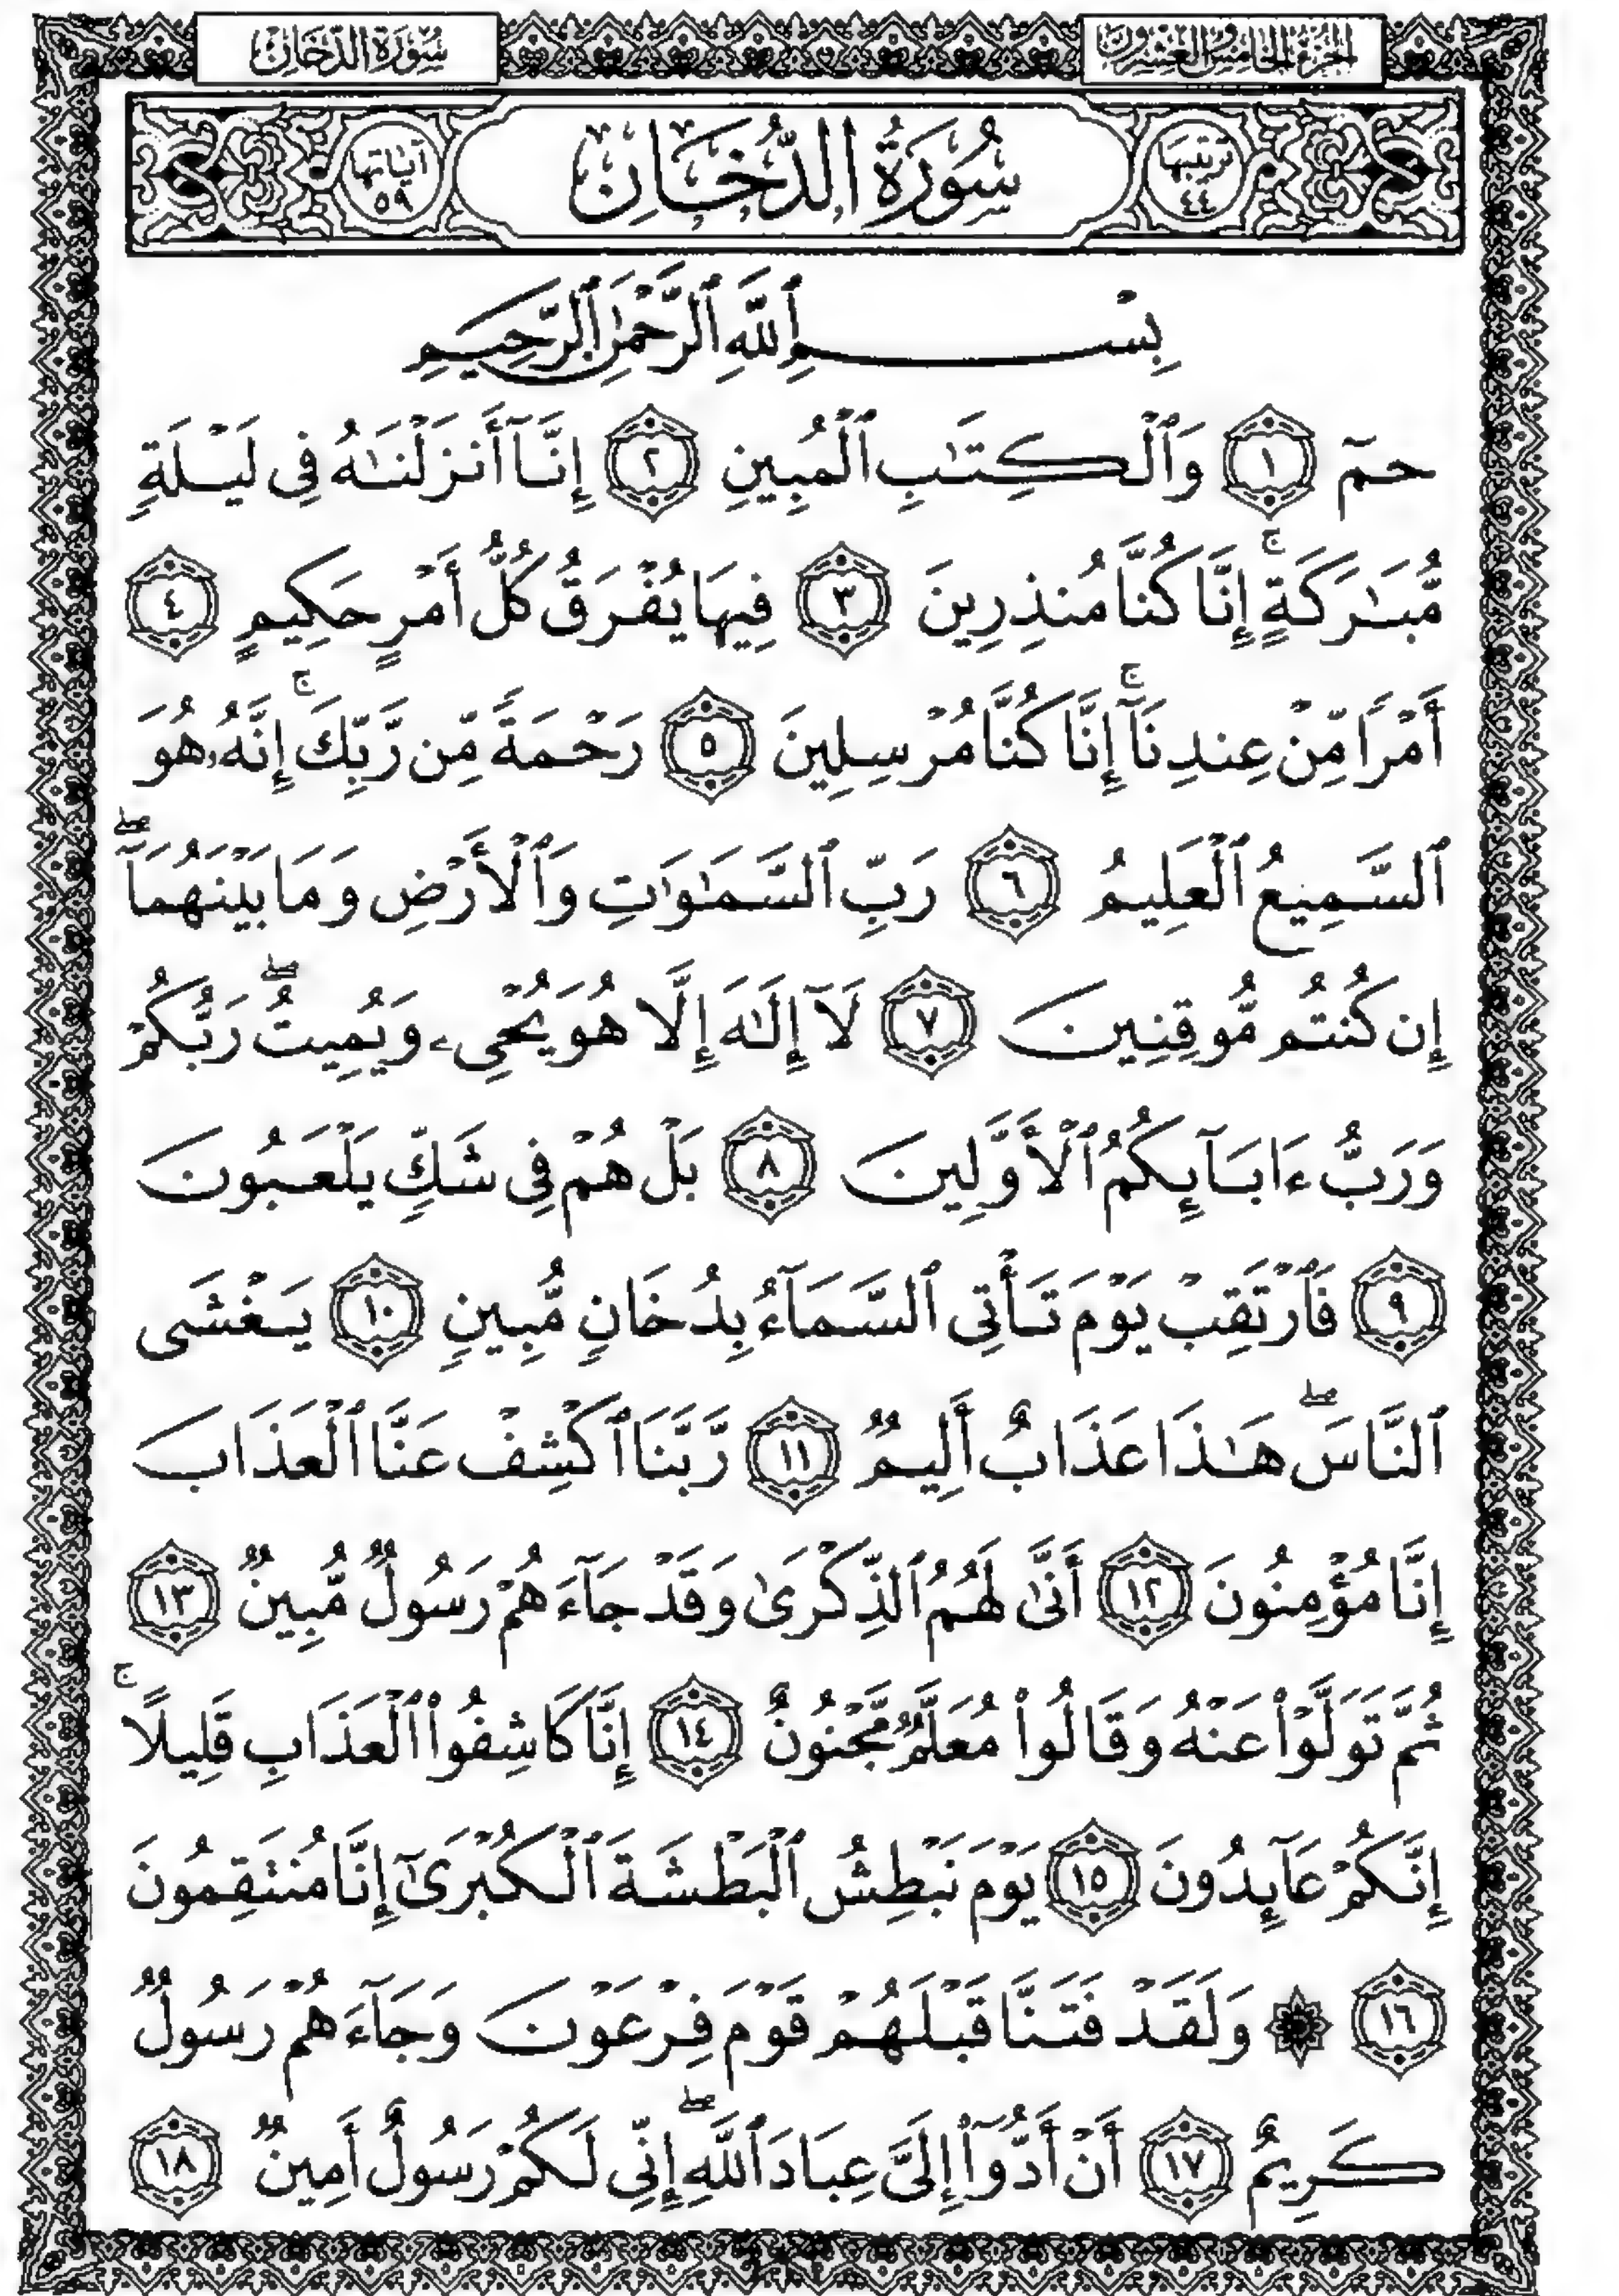 الجزء الخامس والعشرون
سورة الدخان
ترتيبها ٤٤
سُورَةُ الدُّخَانِ
آياتها ٥٩
بِسْمِ ٱللَّهِ ٱلرَّحْمَٰنِ ٱلرَّحِيمِ
حمٓ ١ وَٱلْكِتَٰبِ ٱلْمُبِينِ ٢ إِنَّآ أَنزَلْنَٰهُ فِى لَيْلَةٍ
مُّبَٰرَكَةٍ ۚ إِنَّا كُنَّا مُنذِرِينَ ٣ فِيهَا يُفْرَقُ كُلُّ أَمْرٍ حَكِيمٍ ٤
أَمْرًا مِّنْ عِندِنَآ ۚ إِنَّا كُنَّا مُرْسِلِينَ ٥ رَحْمَةً مِّن رَّبِّكَ ۚ إِنَّهُۥ هُوَ
ٱلسَّمِيعُ ٱلْعَلِيمُ ٦ رَبِّ ٱلسَّمَٰوَٰتِ وَٱلْأَرْضِ وَمَا بَيْنَهُمَآ ۖ
إِن كُنتُم مُّوقِنِينَ ٧ لَآ إِلَٰهَ إِلَّا هُوَ يُحْىِۦ وَيُمِيتُ ۖ رَبُّكُمْ
وَرَبُّ ءَابَآئِكُمُ ٱلْأَوَّلِينَ ٨ بَلْ هُمْ فِى شَكٍّ يَلْعَبُونَ
٩ فَٱرْتَقِبْ يَوْمَ تَأْتِى ٱلسَّمَآءُ بِدُخَانٍ مُّبِينٍ ١٠ يَغْشَى
ٱلنَّاسَ ۖ هَٰذَا عَذَابٌ أَلِيمٌ ١١ رَّبَّنَا ٱكْشِفْ عَنَّا ٱلْعَذَابَ
إِنَّا مُؤْمِنُونَ ١٢ أَنَّىٰ لَهُمُ ٱلذِّكْرَىٰ وَقَدْ جَآءَهُمْ رَسُولٌ مُّبِينٌ ١٣
ثُمَّ تَوَلَّوْا۟ عَنْهُ وَقَالُوا۟ مُعَلَّمٌ مَّجْنُونٌ ١٤ إِنَّا كَاشِفُوا۟ ٱلْعَذَابِ قَلِيلًا ۚ
إِنَّكُمْ عَآئِدُونَ ١٥ يَوْمَ نَبْطِشُ ٱلْبَطْشَةَ ٱلْكُبْرَىٰٓ إِنَّا مُنتَقِمُونَ
١٦ ۞ وَلَقَدْ فَتَنَّا قَبْلَهُمْ قَوْمَ فِرْعَوْنَ وَجَآءَهُمْ رَسُولٌ
كَرِيمٌ ١٧ أَنْ أَدُّوٓا۟ إِلَىَّ عِبَادَ ٱللَّهِ ۖ إِنِّى لَكُمْ رَسُولٌ أَمِينٌ ١٨